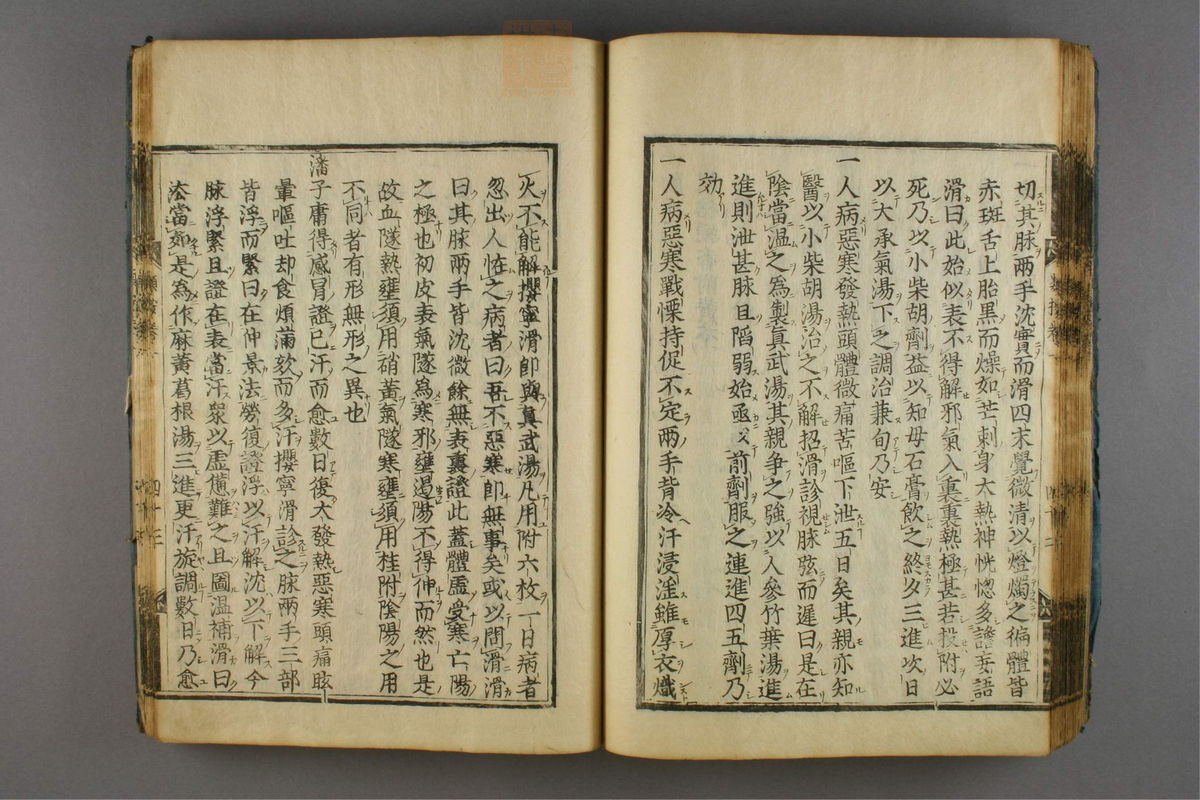 切其脉兩手沈實而滑四末覺微清以燈燭之徧體皆
赤斑舌上胎黑而燥如芒刺身大熱神恍惚多譫妄語
滑曰此始似表不得解邪氣入裏裏熱極甚若投附必
死乃以小柴胡劑益以知母石膏飲之終夕三進次日
以大承氣湯下之調治兼旬乃安
一人病惡寒發熱頭體微痛苦嘔下泄五日矣其親亦知
醫以小柴胡湯治之不解招滑診視脉弦而遲曰是在
陰當温之為製真武湯其親争之強以人參竹葉湯進
進則泄甚脉且陷弱始亟以前劑服之連進四五劑乃
効
一人病惡寒戰慄持促不定兩手背冷汗浸淫雖厚衣熾
火不能解攖寧滑卽與真武湯凡用附六枚一日病者
忽出人怪之病者曰吾不惡寒卽無事矣或以問滑滑
曰其脉兩手皆沈微餘無表裏證此蓋體虚受寒亡陽
之極也初皮表氣隧為寒邪壅遏陽不得伸而然也是
故血隧熱壅須用硝黃氣隧寒壅須用桂附陰陽之用
不同者有形無形之異也
潘子庸得感冒證已汗而愈數日復大發熱惡寒頭痛眩
暈嘔吐却食煩滿欬而多汗攖寧滑診之脉兩手三部
皆浮而緊曰在仲景法勞復證浮以汗解沈以下解今
脉浮緊且證在表當汗衆以虚憊難之且圖温補滑曰
法當如是為作麻黃葛根湯三進更汗旋調數日乃愈